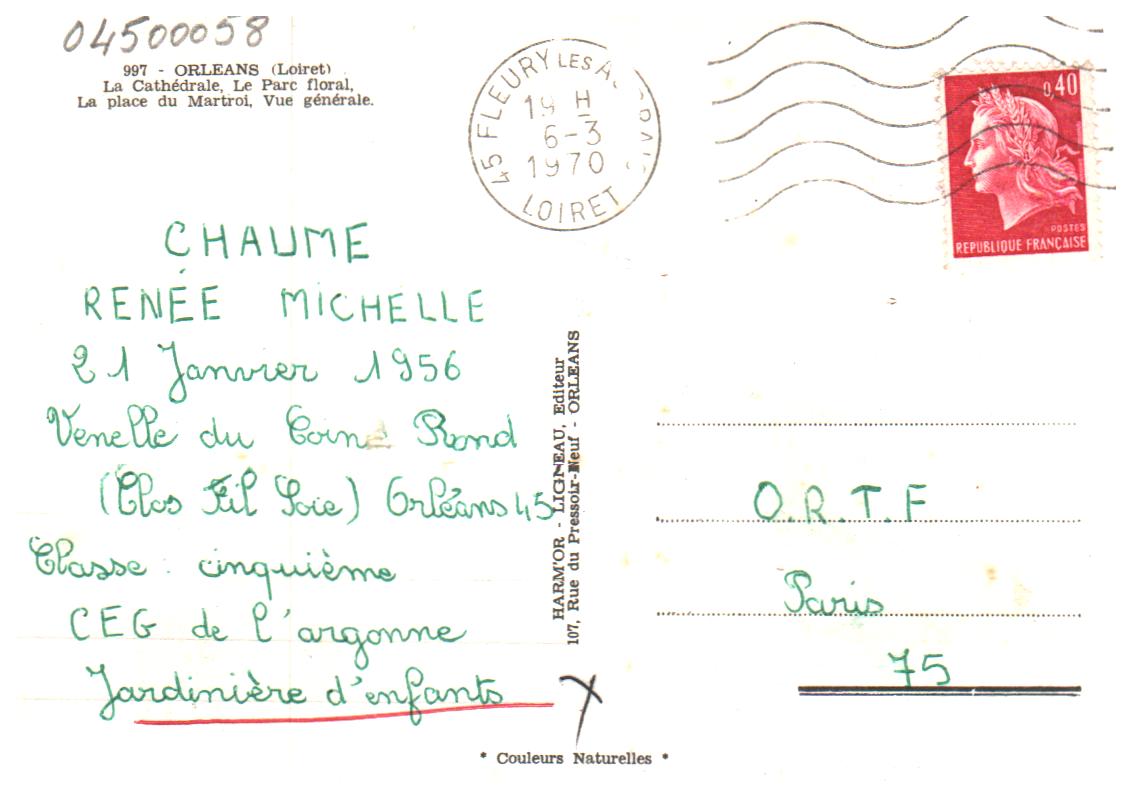 04500058
997 - ORLEANS (Loiret)
La Cathédrale, Le Parc floral,
La place du Martroi, Vue générale.
45 FLEURY LES
19 H
6-3
1970
LOIRET
0,40
POSTES
REPUBLIQUE FRANÇAISE
CHAUME
RENÉE MICHELLE
21 Janvier 1956
Venelle du Coin Rond
(Clos Fil Soie) Orléans 45
Classe : cinquième
CEG de l'argonne
Jardinière d'enfants
HARM'OR - LIGNEAU, Editeur
107, Rue du Pressoir-Neuf - ORLEANS
O.R.T.F
Paris
75
* Couleurs Naturelles *